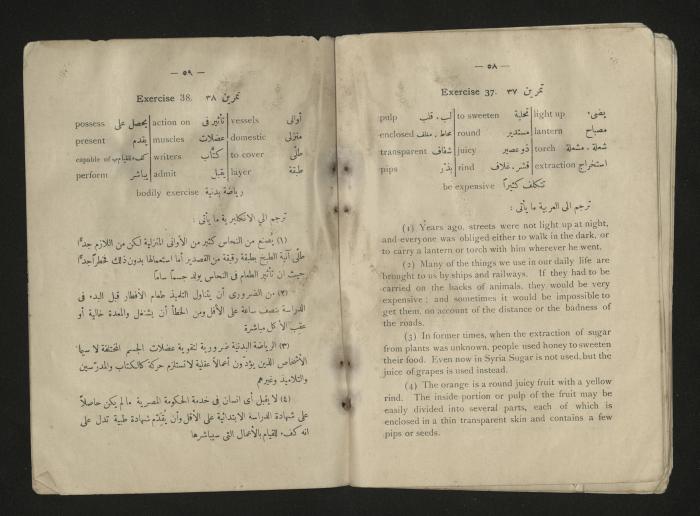 — ٥٨ —
Exercise 37. تمرين ٣٧
pulp لب. قلب to sweeten تحلية light up يضيء
enclosed محاط. مغلف round مستدير lantern مصباح
transparent شفاف juicy ذو عصير torch شعلة. مشعلة
pips بذر rind قشر. غلاف extraction استخراج
be expensive تتكلف كثيراً
ترجم الى العربية ما يأتى :
(1) Years ago, streets were not light up at night,
and everyone was obliged either to walk in the dark, or
to carry a lantern or torch with him wherever he went.
(2) Many of the things we use in our daily life are
brought to us by ships and railways. If they had to be
carried on the backs of animals, they would be very
expensive; and sometimes it would be impossible to
get them, on account of the distance or the badness of
the roads.
(3) In former times, when the extraction of sugar
from plants was unknown, people used honey to sweeten
their food. Even now in Syria Sugar is not used, but the
juice of grapes is used instead.
(4) The orange is a round juicy fruit with a yellow
rind. The inside portion or pulp of the fruit may be
easily divided into several parts, each of which is
enclosed in a thin transparent skin and contains a few
pips or seeds.
— ٥٩ —
Exercise 38. تمرين ٣٨
possess يحصل على action on تأثير فى vessels أوانى
present يقدم muscles عضلات domestic منزلى
capable of كفء للقيام ب writers كتّاب to cover طلّى
perform يباشر admit يقبل layer طبقة
bodily exercise رياضة بدنية
ترجم الى الانكليزية ما يأتى :
(١) يُصنع من النحاس كثير من الأوانى المنزلية لكن من اللازم جدًّا
طلّى آنية الطبخ بطبقة رقيقة من القصدير أما استعمالها بدون ذلك فخطر جدًّا
حيث ان تأثير الطعام فى النحاس يولد جسماً ساماً
(٢) من الضرورى أن يتناول التلميذ طعام الأفطار قبل البدء فى
الدراسة بنصف ساعة على الأقل ومن الخطأ أن يشتغل والمعدة خالية أو
عقب الأكل مباشرة
(٣) الرياضة البدنية ضرورية لتقوية عضلات الجسم المختلفة لا سيما
الأشخاص الذين يؤدّون أعمالاً عقلية لا تستلزم حركة كالكتاب والمدرّسين
والتلاميذ وغيرهم
(٤) لا يقبل أى انسان فى خدمة الحكومة المصرية ما لم يكن حاصلاً
على شهادة الدراسة الابتدائية على الأقل وأن يُقدّم شهادة طبية تدل على
انه كفء للقيام بالأعمال التى سيباشرها